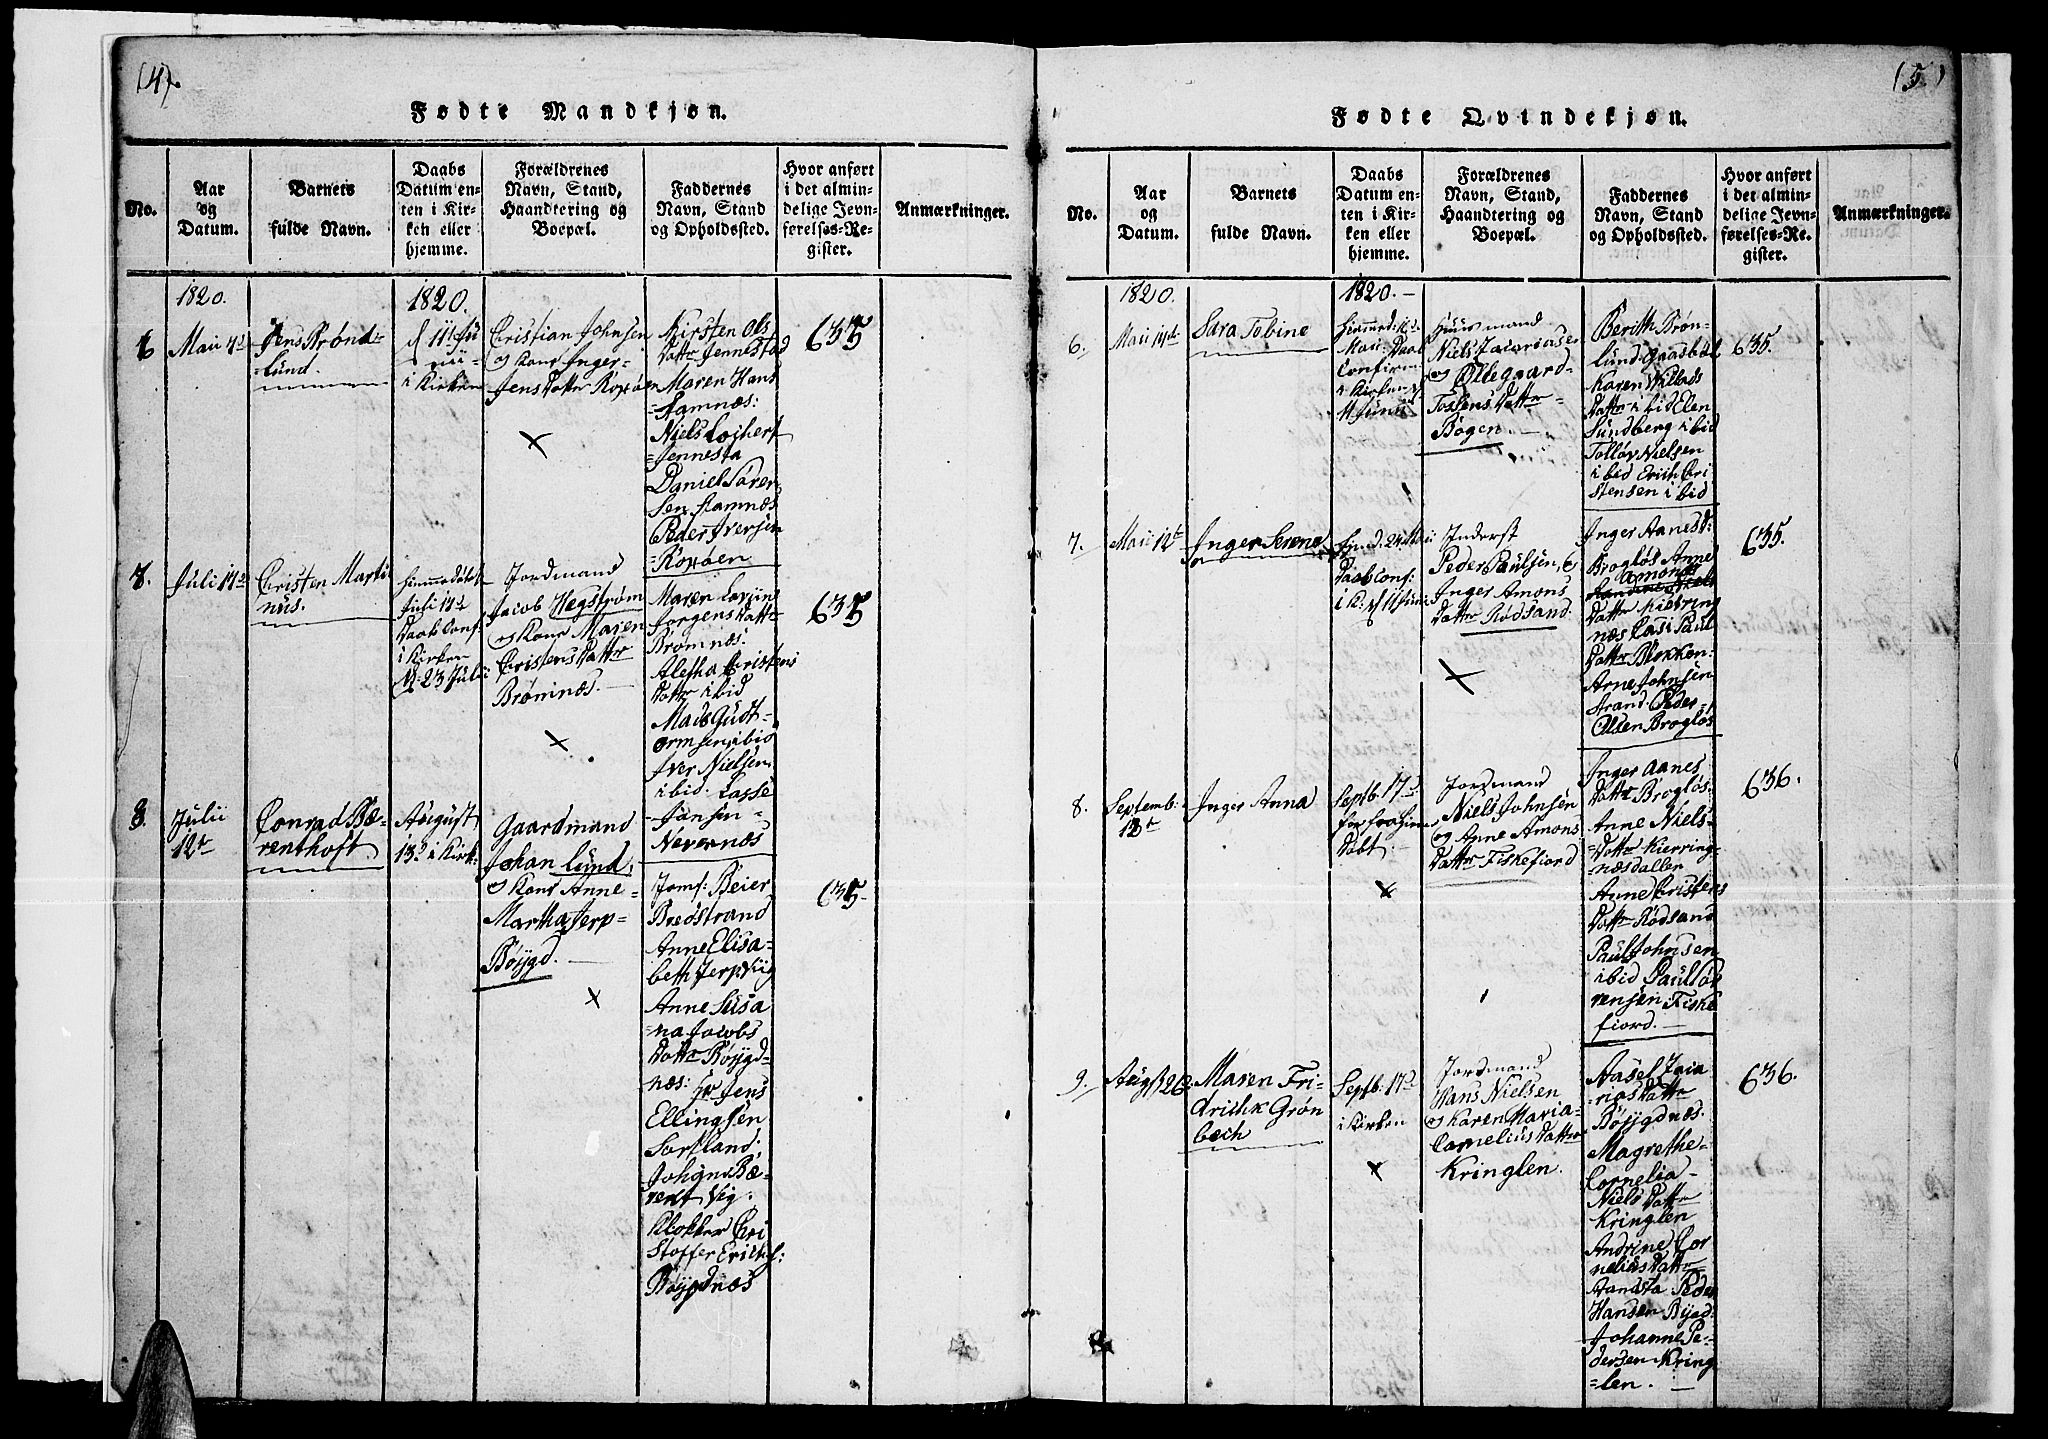 (4).
Fødte Mandkjøn.
No.
Aar
og
Datum.
Barnets
fulde Navn.
Daabs
Datum en-
ten i Kir-
ken eller
hjemme.
Forældrenes
Navn, Stand,
Haandtering og
Boepæl.
Faddernes
Navn, Stand
og Opholdssted.
Hvor anført
i det almin-
delige Jevn-
førelses-Re-
gister.
Anmærkninger.
1820.
6
Maii
Jens Brønd-
lund.
1820.
i Kirken
Christian Johnsen
og Kone Inger
Jens Datter Roxøen
Kirsten Ols
Datter Jennestad
Maren Hans
Hamnæs:
Niels Lojhert
Jennesta
Daniel Sören
Sen Hamnæs
Peder Iversen
Roxøen
635
7.
Juli
Christen Marti
nus.
Juli
Daab Conf:
i Kirken
23 Julii
Jordmand
Jacob Hegstrøm
og Kone Maren
Christens Datter
Bromnæs.
Maren
Jorgens Datter
Bromnæs:
Aletha Christens
Datter ibid
Mads Gudt-
ormsen ibid
Iver Nielsen
ibid. Lasse
Jansen
Nevernæs
635
8.
Julii
12te
Conrad Bæ-
renthoft
August
13d i Kirk:
Gaardmand
Johan Lund,
og Kone Anne
Martha Jerp-
Böygd.
Jomf: Beier
Bredstrand
Anne Elisa-
beth Jerp Viig
Anne Susa
na Jacobs
Datter Böygd-
næs: Hr Jens
Ellingsen
Sortland:
Johan Bæ-
rent Vig.
Klokker Chri
Stoffer Erichs:
Böygdnæs
635.
(5)
Fødte Qvindekjøn.
No.
Aar
og
Datum.
Barnets
fulde Navn.
Daabs
Datum en-
ten i Kir-
ken eller
hjemme.
Forældrenes
Navn, Stand,
Haandtering og
Boepæl.
Faddernes
Navn, Stand
og Opholdssted.
Hvor anført
i det almin-
delige Jevn-
førelses-Re-
gister.
Anmærkninger.
1820.
6.
Maii
Sara Tobine
1820.
Maii Daab
Confirm
i Kirken
Huusmand
Niels Zacariasen
og Øllegaard
Tostens Datter
Bogen.
Berith Brøn-
lund Gaasböl
Karen Willads
Datter ibid Elen
Sundberg ibid
Tolløv Nielsen
ibid Erich Chri
stensen ibid
635.
7.
Maii 12te
Inger Serene
Daab Conf:
i K: d 11 Juni
Inderst
Peder Paulsen, og
Inger Amons
Datter Rødsand.
Inger Aanesd:
Brogløs Anne
Amonds
Datter Kierring
næs Casi Paul
Datter Blokken:
Arne Johnsen
Strand. Peder
Olsen Brogløs
635.
8.
Septemb:
Inger Anna
Septb. 17d
Döbt.
Jordmand
Niels Johnsen
og Anne Amons
Datter Fiskefiord
Inger Aanes
Datter Brogløs.
Anne Niels
Datter Kierring-
næsdallen
Anne Christens
Datter Rødsand
Paul Johnsen
ibid Paul Sör
rensen Fiske
fiord.
636.
9.
Augst 26
Maren Fri-
drichk Grøn
bech
Septb: 17d
i Kirken
Jordmand
Hans Nielsen
og Karen Maria
Cornelius Datter
Kringlen.
Aasel Zaca
rias Datter
Böygdnæs.
Magrethe
Cornelia
Niels Datter
Kringlen
Andrine Cor
nelius Datter
Peder
Hansen Bygd:
Johanne Pe-
dersen Kring
len.
636.